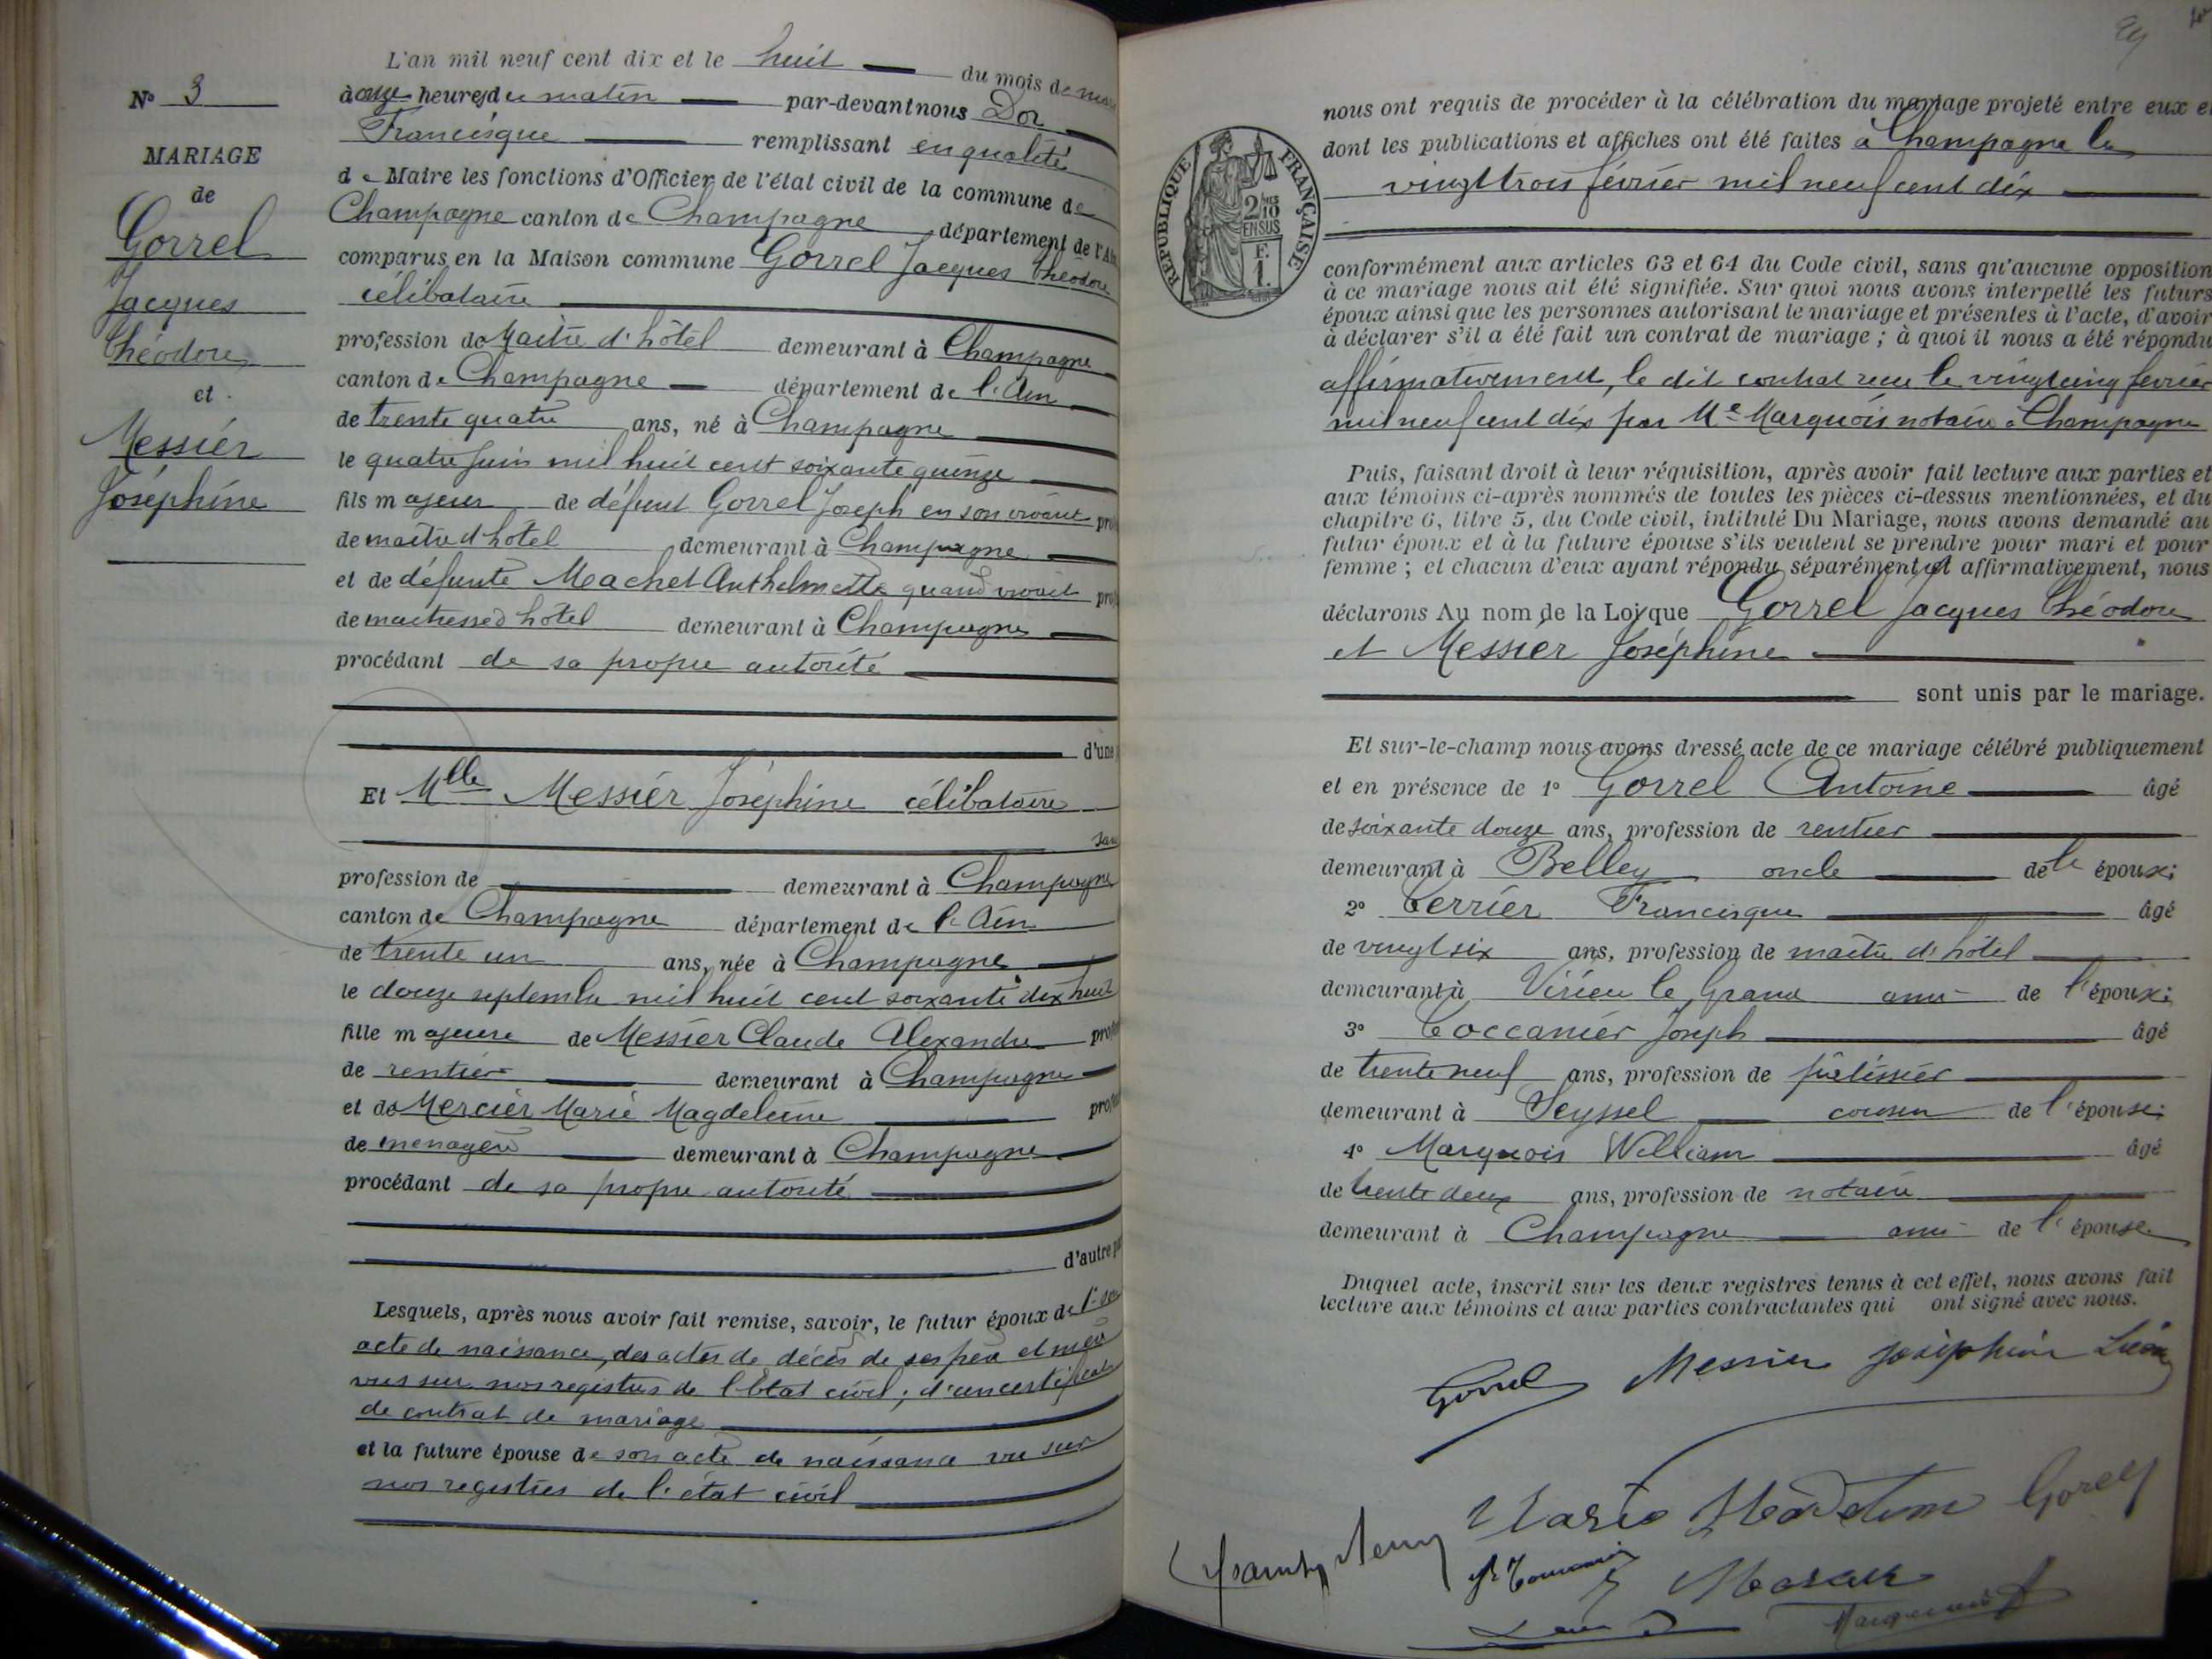 N° 3
MARIAGE
de
Gorrel
Jacques
Théodore
et
Messier
Joséphine
L'an mil neuf cent dix et le huit du mois de mars
à onze heures du matin par-devant nous Dor
Francisque remplissant en qualité
de Maire les fonctions d'Officier de l'état civil de la commune de
Champagne canton de Champagne département de l'Ain
comparus en la Maison commune Gorrel Jacques Théodore
célibataire
profession de Maître d'hôtel demeurant à Champagne
canton de Champagne département de l'Ain
de trente quatre ans, né à Champagne
le quatre Juin mil huit cent soixante quinze
fils majeur de défunt Gorrel Joseph en son vivant
de maître d'hôtel demeurant à Champagne
et de défunte Machet Anthelmette quand vivait
de maitresse d'hôtel demeurant à Champagne
procédant de sa propre autorité
d'une
Et Mlle Messier Joséphine célibataire
sans
profession de demeurant à Champagne
canton de Champagne département de l'Ain
de trente un ans, née à Champagne
le douze septembre mil huit cent soixante dix huit
fille majeure de Messier Claude Alexandre
de rentier demeurant à Champagne
et de Mercier Marie Magdeleine
de menagère demeurant à Champagne
procédant de sa propre autorité
d'autre
Lesquels, après nous avoir fait remise, savoir, le futur époux de l'
acte de naissance, des actes de décès de ses père et mère
vus sur nos registres de l'Etat civil; d'un certificat
de contrat de mariage
et la future épouse de son acte de naissance vu sur
nos registres de l'état civil
nous ont requis de procéder à la célébration du mariage projeté entre eux et
dont les publications et affiches ont été faites à Champagne le
vingt trois février mil neuf cent dix
RÉPUBLIQUE FRANÇAISE
2/10 EN SUS
F.
1.
conformément aux articles 63 et 64 du Code civil, sans qu'aucune opposition
à ce mariage nous ait été signifiée. Sur quoi nous avons interpellé les futurs
époux ainsi que les personnes autorisant le mariage et présentes à l'acte, d'avoir
à déclarer s'il a été fait un contrat de mariage ; à quoi il nous a été répondu
affirmativement, le dit contrat recu le vingt cinq fevrier
mil neuf cent dix par Me Marquois notaire à Champagne
Puis, faisant droit à leur réquisition, après avoir fait lecture aux parties et
aux témoins ci-après nommés de toutes les pièces ci-dessus mentionnées, et du
chapitre 6, titre 5, du Code civil, intitulé Du Mariage, nous avons demandé au
futur époux et à la future épouse s'ils veulent se prendre pour mari et pour
femme ; et chacun d'eux ayant répondu séparément et affirmativement, nous
déclarons Au nom de la Loi que Gorrel Jacques Théodore
et Messier Joséphine
sont unis par le mariage.
Et sur-le-champ nous avons dressé acte de ce mariage célébré publiquement
et en présence de 1° Gorrel Antoine âgé
de soixante douze ans, profession de rentier
demeurant à Belley oncle de l' époux;
2° Terrier Francisque âgé
de vingt six ans, profession de maître d'hôtel
demeurant à Virieu le Grand ami de l'époux;
3° Coccanier Joseph âgé
de trente neuf ans, profession de pâtissier
demeurant à Seyssel cousin de l'épouse;
4° Marquois William âgé
de trente deux ans, profession de notaire
demeurant à Champagne ami de l'épouse
Duquel acte, inscrit sur les deux registres tenus à cet effet, nous avons fait
lecture aux témoins et aux parties contractantes qui ont signé avec nous.
Gorrel Messier Joséphine
Gorrel